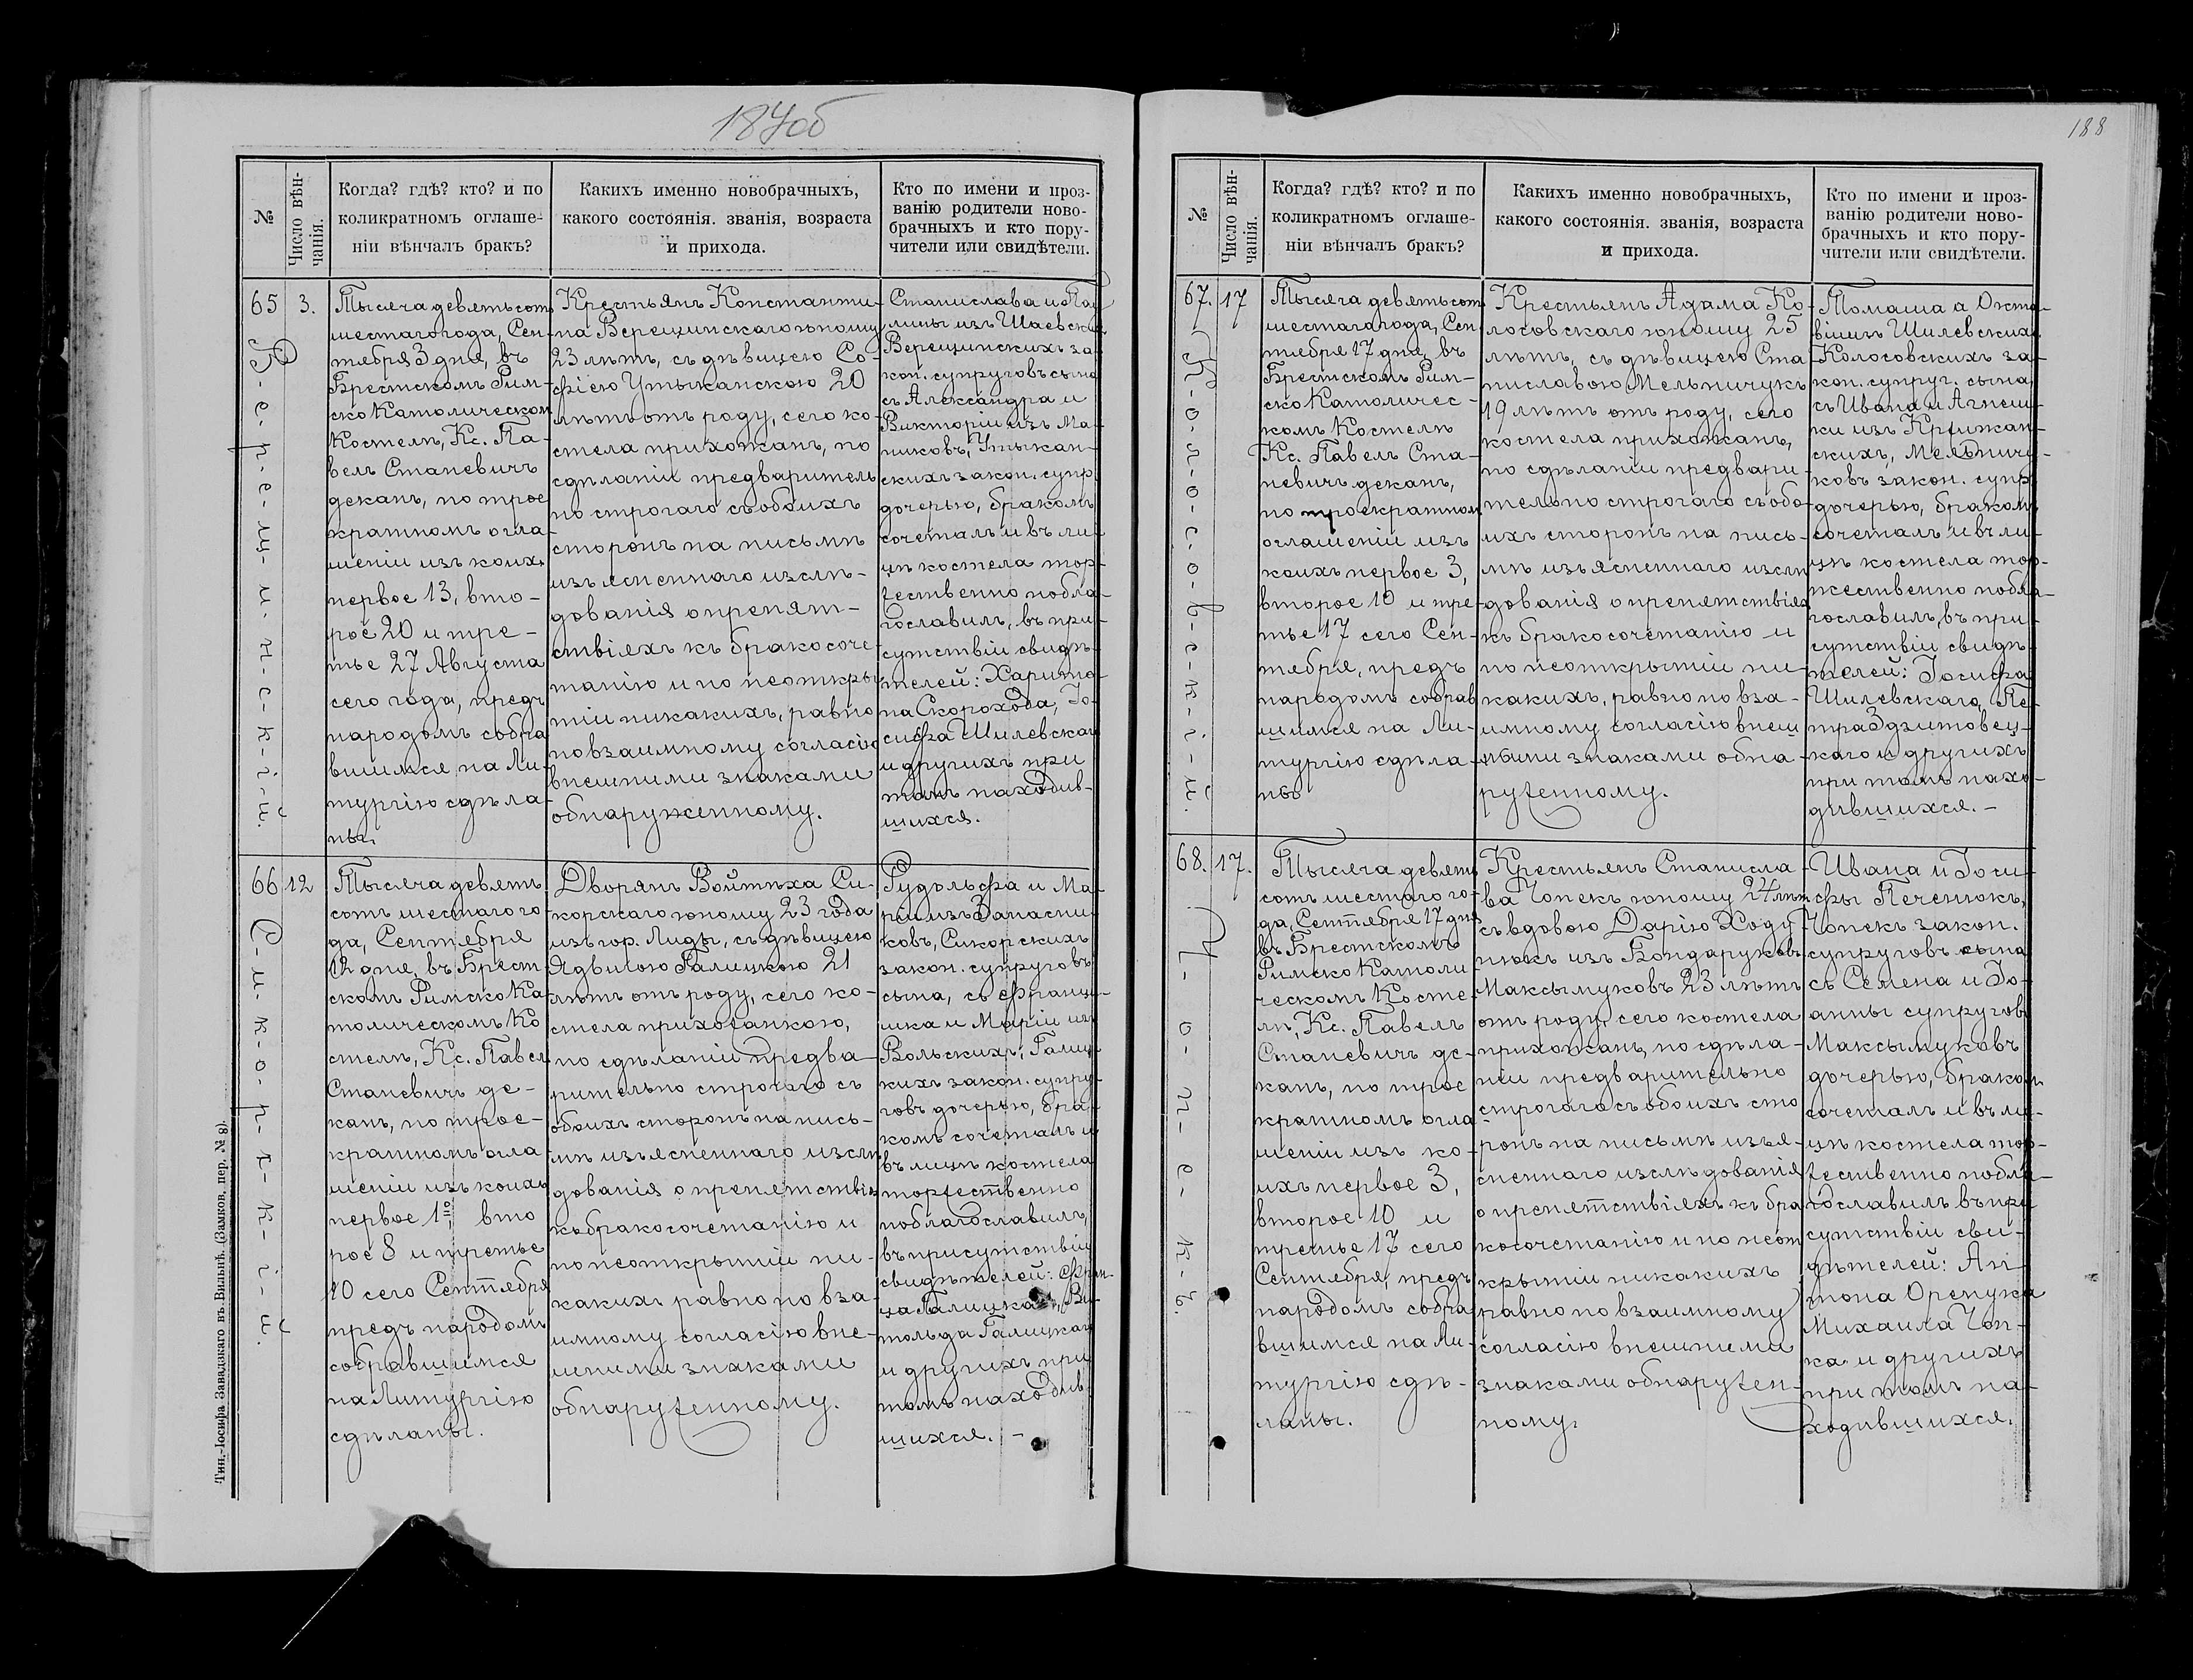 187об
№
Число вѣн-
чанія.
Когда? гдѣ? кто? и по
коликратномъ оглаше-
ніи вѣнчалъ бракъ?
Какихъ именно новобрачныхъ,
какого состоянія. званія, возраста
и прихода.
Кто по имени и проз-
ванію родители ново-
брачныхъ и кто пору-
чители или свидѣтели.
65
В-е-р-е-щ-и-н-с-к-і-й.
3.
Тысяча девятьсотъ
шестаго года, Сен-
тября 3 дня, въ
Брестскомъ Рим-
ско Католическом
Костелѣ, Кс. Па-
велъ Станевичъ
деканъ, по трое
кратномъ огла
шеніи изъ коихъ
первое 13, вто-
рое 20 и тре-
тье 27 Августа
сего года, предъ
народомъ собра
вшимся на Ли-
тургію сдѣла
ны.
Крестьянъ Константи-
на Верещинскаго юношу
23 лѣтъ, съ дѣвицею Со-
фіею Утыканскою 20
лѣтъ отъ роду, сего ко-
стела прихожанъ, по
сдѣланіи предваритель
но строгаго съ обоихъ
сторонъ на письмѣ
изъясненнаго изслѣ-
дованія о препят-
ствіяхъ къ бракосоче-
танію и по неоткры
тіи никакихъ, равно
по взаимному согласію
внешними знаками
обнаруженному.
Станислава и Па
лины изъ Шаевских
Верещинскихъ за
кон. супруговъ сына
съ Александра и
Викторіи изъ Ма-
никовъ, Утыкан-
скихъ закон. супр.
дочерью, бракомъ
сочеталъ и въ ли-
цѣ костела тор-
жественно побла-
гославилъ, въ при-
сутствіи свидѣ-
телей: Харито-
на Скорохода, Іо-
сифа Шилевскаго
и другихъ при
томъ находив-
шихся.
66
С-и-к-о-р-с-к-і-й.
12
Тысяча девять
сотъ шестаго го
да, Сентября
12 дня, въ Брест
скомъ Римско Ка
толическомъ Ко
стелѣ, Кс. Павел
Станевичъ де-
канъ, по трое-
кратномъ огла
шеніи изъ коихъ
первое 1ᵒᵉ, вто
рое 8 и третье
10 сего Сентября
предъ народомъ
собравшимся
на Литургію
сдѣланы.
Дворянъ Войтѣха Си-
корскаго юношу 23 года
изъ гор. Лиды, съ дѣвицею
Ядвигою Галицкою 21
лѣтъ отъ роду, сего ко-
стела прихожанкою,
по сдѣланіи предва
рительно строгаго съ
обоихъ сторонъ на пись-
мѣ изъясненнаго изслѣ
дованія о препятствіях
къ бракосочетанію и
по неоткрытіи ни-
какихъ равно по вза-
имному согласію вне-
шними знаками
обнаруженному.
Рудольфа и Ма-
ріи изъ Запасни-
ковъ, Сикорскихъ
закон. супруговъ
сына, съ Франци-
шка и Маріи изъ
Вольскихъ, Галиц-
кихъ закон. супру-
говъ дочерью, бра-
комъ сочеталъ и
въ лицѣ костела
торжественно
поблагославилъ,
въ присутствіи
свидѣтелей: Фран-
ца Галицкаго, Ви-
тольда Галицкаго
и другихъ при
томъ находив-
шихся. -
Тип. Іосифа Завадзкаго въ Вильнѣ. (Замков. пер. № 8).
188
№
Число вѣн-
чанія.
Когда? гдѣ? кто? и по
коликратномъ оглаше-
ніи вѣнчалъ бракъ?
Какихъ именно новобрачныхъ,
какого состоянія. званія, возраста
и прихода.
Кто по имени и проз-
ванію родители ново-
брачныхъ и кто пору-
чители или свидѣтели.
67.
К-о-л-о-с-о-в-с-к-і-й.
17
Тысяча девятьсот
шестаго года, Сен
тября 17 дня, въ
Брестскомъ Рим-
ско Католичес-
комъ Костелѣ
Кс. Павелъ Ста-
невичъ деканъ,
по троекратном
оглашеніи изъ
коихъ первое 3,
второе 10 и тре-
тье 17 сего Сен-
тября, предъ
народомъ собрав
шимся на Ли-
тургію сдѣла-
ны
Крестьянъ Адама Ко-
лосовскаго юношу 25
лѣтъ, съ дѣвицею Ста
ниславою Мельничукъ
19 лѣтъ отъ роду, сего
костела прихожанъ,
по сдѣланіи предвари-
тельно строгаго съ обо-
ихъ сторонъ на пись-
мѣ изъясненнаго изслѣ
дованія о препятствіях
къ бракосочетанію и
по неоткрытіи ни-
какихъ, равно по вза-
имному согласію внеш
ними знаками обна-
руженному.
Томаша а Окта-
віи изъ Шилевских
Колосовскихъ за-
кон. супруг. сына,
съ Ивана и Агнеш-
ки изъ Крыжан-
скихъ, Мельничу-
ковъ закон. супр.
дочерью, бракомъ
сочеталъ и въ ли-
цѣ костела тор-
жественно побла-
гославилъ, въ при-
сутствіи свидѣ-
телей: Іосифа
Шилевскаго, Пе-
тра Здзитовец-
каго и другихъ
при томъ нахо-
дившихся. -
68.
Ч-о-п-е-к-ъ.
17.
Тысяча девять
сотъ шестаго го-
да, Сентября 17 дня
въ Брестскомъ
Римско Католи
ческомъ Косте-
лѣ, Кс. Павелъ
Станевичъ де-
канъ, по трое
кратномъ огла
шеніи изъ ко-
ихъ первое 3,
второе 10 и
третье 17 сего
Сентября, предъ
народомъ собра
вшимся на Ли-
тургію сдѣ-
ланы.
Крестьянъ Станисла
ва Чопекъ юношу 24 лѣт
съ вдовою Дарію Ходу-
нюкъ изъ Бондаруковъ
Максымуковъ 23 лѣтъ
отъ роду, сего костела
прихожанъ, по сдѣла-
ніи предварительно
строгаго съ обоихъ сто
ронъ на письмѣ изъя-
сненнаго изслѣдованія
о препятствіяхъ къ бра
косочетанію и по неот
крытіи никакихъ
равно по взаимному
согласію внешними
знаками обнаружен-
ному.
Ивана и Іоси-
фы Печенюкъ,
Чопекъ закон.
супруговъ сына
съ Семена и Іо-
анны супругов
Максымуковъ
дочерью, бракомъ
сочеталъ и въ ли-
цѣ костела тор-
жественно побла-
гославилъ въ при
сутствіи сви-
дѣтелей: Ан-
тона Оренука
Михаила Чоп-
ка и другихъ
при томъ на-
ходившихся.